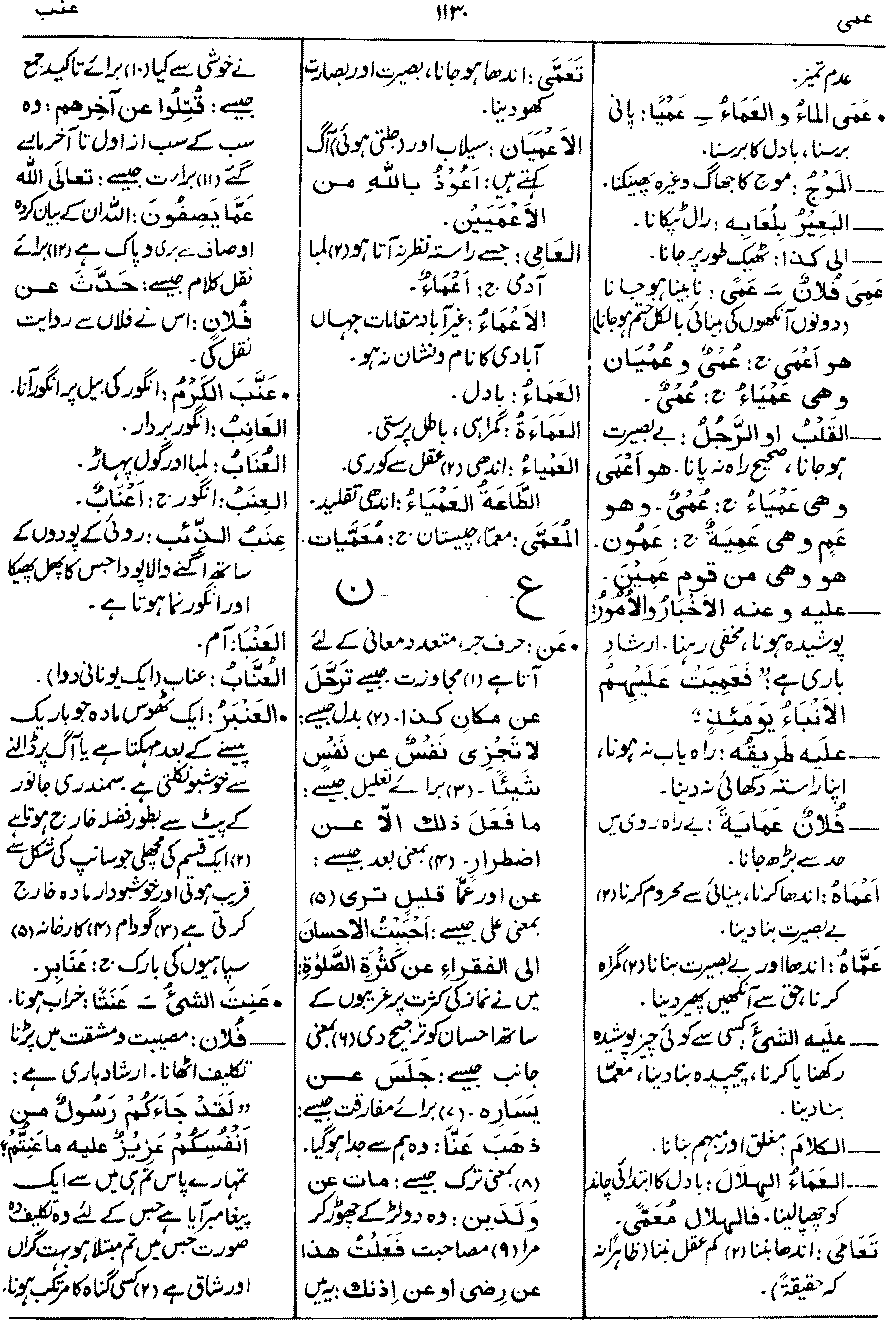 عمی
۱۱۳۰
عنب
عدم تمیز۔
• عَمَى الماءُ و العَمَاءُ ـِ عَمْيًا: پانی
برسنا، بادل کا برسنا۔
— المَوْجُ: موج کا جھاگ وغیرہ پھینکنا۔
— البَعِيْرُ بِلُعَابِهِ: رال ٹپکانا۔
— الی كذا: ٹھیک طور پر جانا۔
عَمِىَ فُلانٌ ـَ عَمًى: نابینا ہوجانا
(دونوں آنکھوں کی بینائی بالکل ختم ہوجانا)
هو اَعْمَى ج: عُمْىٌ و عُمْيَان
و هى عَمْيَاءُ ج: عُمْىٌ۔
— القَلْبُ او الرَّجُلُ: بے بصیرت
ہوجانا، صحیح راہ نہ پانا۔ هو اَعْمَى
و هى عَمْيَاءُ ج: عُمْىٌ۔ و هو
عَمٍ و هى عَمِيَةٌ ج: عَمُون۔
هو و هى من قوم عَمِيْن۔
— عليه و عنه الاَخْبَارُ والاُمُوْرُ:
پوشیدہ ہونا، مخفی رہنا۔ ارشاد
باری ہے: ”فَعَمِيَتْ عَلَيْهِمُ
الاَنْبَاءُ يَوْمَئِذٍ“
— عليه طَرِيقُه: راہ یاب نہ ہونا،
اپنا راستہ دکھائی نہ دینا۔
— فُلانٌ عَمَايَةً: بے راہ روی میں
حد سے بڑھ جانا۔
اَعْمَاهُ: اندھا کرنا، بینائی سے محروم کرنا (۲)
بے بصیرت بنا دینا۔
عَمَّاهُ: اندھا اور بے بصیرت بنانا (۲) گمراہ
کرنا، حق سے آنکھیں پھیر دینا۔
— عليه الشئَ: کسی سے کوئی چیز پوشیدہ
رکھنا یا کرنا، پیچیدہ بنا دینا، معمّا
بنا دینا۔
— الكلامَ: مغلق اور مبہم بنانا۔
— العَمَاءُ الهِلَالَ: بادل کا ابتدائی چاند
کو چھپا لینا۔ فالهلال مُعَمًّى۔
تَعَامَى: اندھا بننا (۲) کم عقل بننا (ظاہراً نہ
کہ حقیقةً)۔
تَعَمَّى: اندھا ہوجانا، بصیرت اور بصارت
کھو دینا۔
الاَعْمَيَان: سیلاب اور (جلتی ہوئی) آگ
کہتے ہیں: اَعُوْذُ بِاللهِ مِن
الاَعْمَيَيْن۔
العَامِى: جسے راستہ نظر نہ آتا ہو (۲) لمبا
آدمی ج: اَعْمَاءٌ۔
الاَعْمَاءُ: غیر آباد مقامات جہاں
آبادی کا نام و نشان نہ ہو۔
العَمَاءُ: بادل۔
العَمَاءَةُ: گمراہی، باطل پرستی۔
العَمْيَاءُ: اندھی (۲) عقل سے کوری۔
الطَّاعَةُ العَمْيَاءُ: اندھی تقلید۔
المُعَمَّى: معمّا، چیستان ج: مُعَمَّيَات۔
ع ن
• عَن: حرف جر، متعدد معانی کے لئے
آتا ہے (۱) مجاوزت جیسے تَرَحَّلَ
عن مکانِ کذا۔ (۲) بدل جیسے:
لا تَجْزِى نَفْسٌ عن نَفْسٍ
شَيْئًا۔ (۳) برائے تعلیل جیسے:
ما فَعَلَ ذلك الّا عن
اضطرارٍ۔ (۴) بمعنی بعد جیسے:
عن اور عَمَّا قليلٍ تری (۵)
بمعنی علی جیسے: اَحْبَبْتُ الاحسانَ
الى الفقراءِ عن كَثْرَةِ الصَّلوٰةِ:
میں نے نماز کی کثرت پر غریبوں کے
ساتھ احسان کو ترجیح دی (۶) بمعنی
جانب جیسے: جَلَسَ عن
يَسَارِه۔ (۷) برائے مفارقت جیسے:
ذهَبَ عَنَّا: وہ ہم سے جدا ہوگیا۔
(۸) بمعنی ترک جیسے: مات عن
وَلَدَين: وہ دو لڑکے چھوڑ کر
مرا (۹) مصاحبت فَعَلْتُ هذا
عن رِضًى او عن اِذنك: یہ میں
نے خوشی سے کیا (۱۰) برائے تاکید جمع
جیسے: قُتِلُوا عن آخرِهم: وہ
سب کے سب از اول تا آخر مارے
گئے (۱۱) براءت جیسے: تعالى الله
عَمَّا يَصِفُونَ: اللہ ان کے بیان کردہ
اوصاف سے بری و پاک ہے (۱۲) برائے
نقل کلام جیسے: حَدَّثَ عن
فُلانٍ: اس نے فلاں سے روایت
نقل کی۔
• عَنَّبَ الكَرْمُ: انگور کی بیل پر انگور آنا۔
العَانِبُ: انگور بردار۔
العُنَابُ: لمبا اور گول پہاڑ۔
العِنَبُ: انگور ج: اَعْنَابٌ۔
عِنَبُ الذِّئب: روئی کے پودوں کے
ساتھ اگنے والا پودا جس کا پھل پھیکا
اور انگور نما ہوتا ہے۔
العَنْبَا: آم۔
العُنَّابُ: عناب (ایک یونانی دوا)۔
• العَنْبَرُ: ایک ٹھوس مادہ جو باریک
پیسنے کے بعد مہکتا ہے یا آگ پر ڈالنے
سے خوشبو نکلتی ہے۔ سمندری جانور
کے پیٹ سے بطور فضلہ خارج ہوتا ہے
(۲) ایک قسم کی مچھلی جو سانپ کی شکل سے
قریب ہوتی اور خوشبودار مادہ خارج
کرتی ہے (۳) گودام (۴) کارخانہ (۵)
سپاہیوں کی بارک ج: عَنَابِر۔
• عَنِتَ الشئُ ـَ عَنَتًا: خراب ہونا۔
— فُلان: مصیبت و مشقت میں پڑنا
تکلیف اٹھانا۔ ارشاد باری ہے:
”لَقَدْ جَاءَكُمْ رَسُولٌ من
اَنْفُسِكُمْ عَزِيْزٌ عليه ما عَنِتُّمْ“
تمہارے پاس تم ہی میں سے ایک
پیغامبر آیا ہے جس کے لئے وہ تکلیف دہ
صورت جس میں تم مبتلا ہو بہت گراں
اور شاق ہے (۲) کسی گناہ کا مرتکب ہونا۔